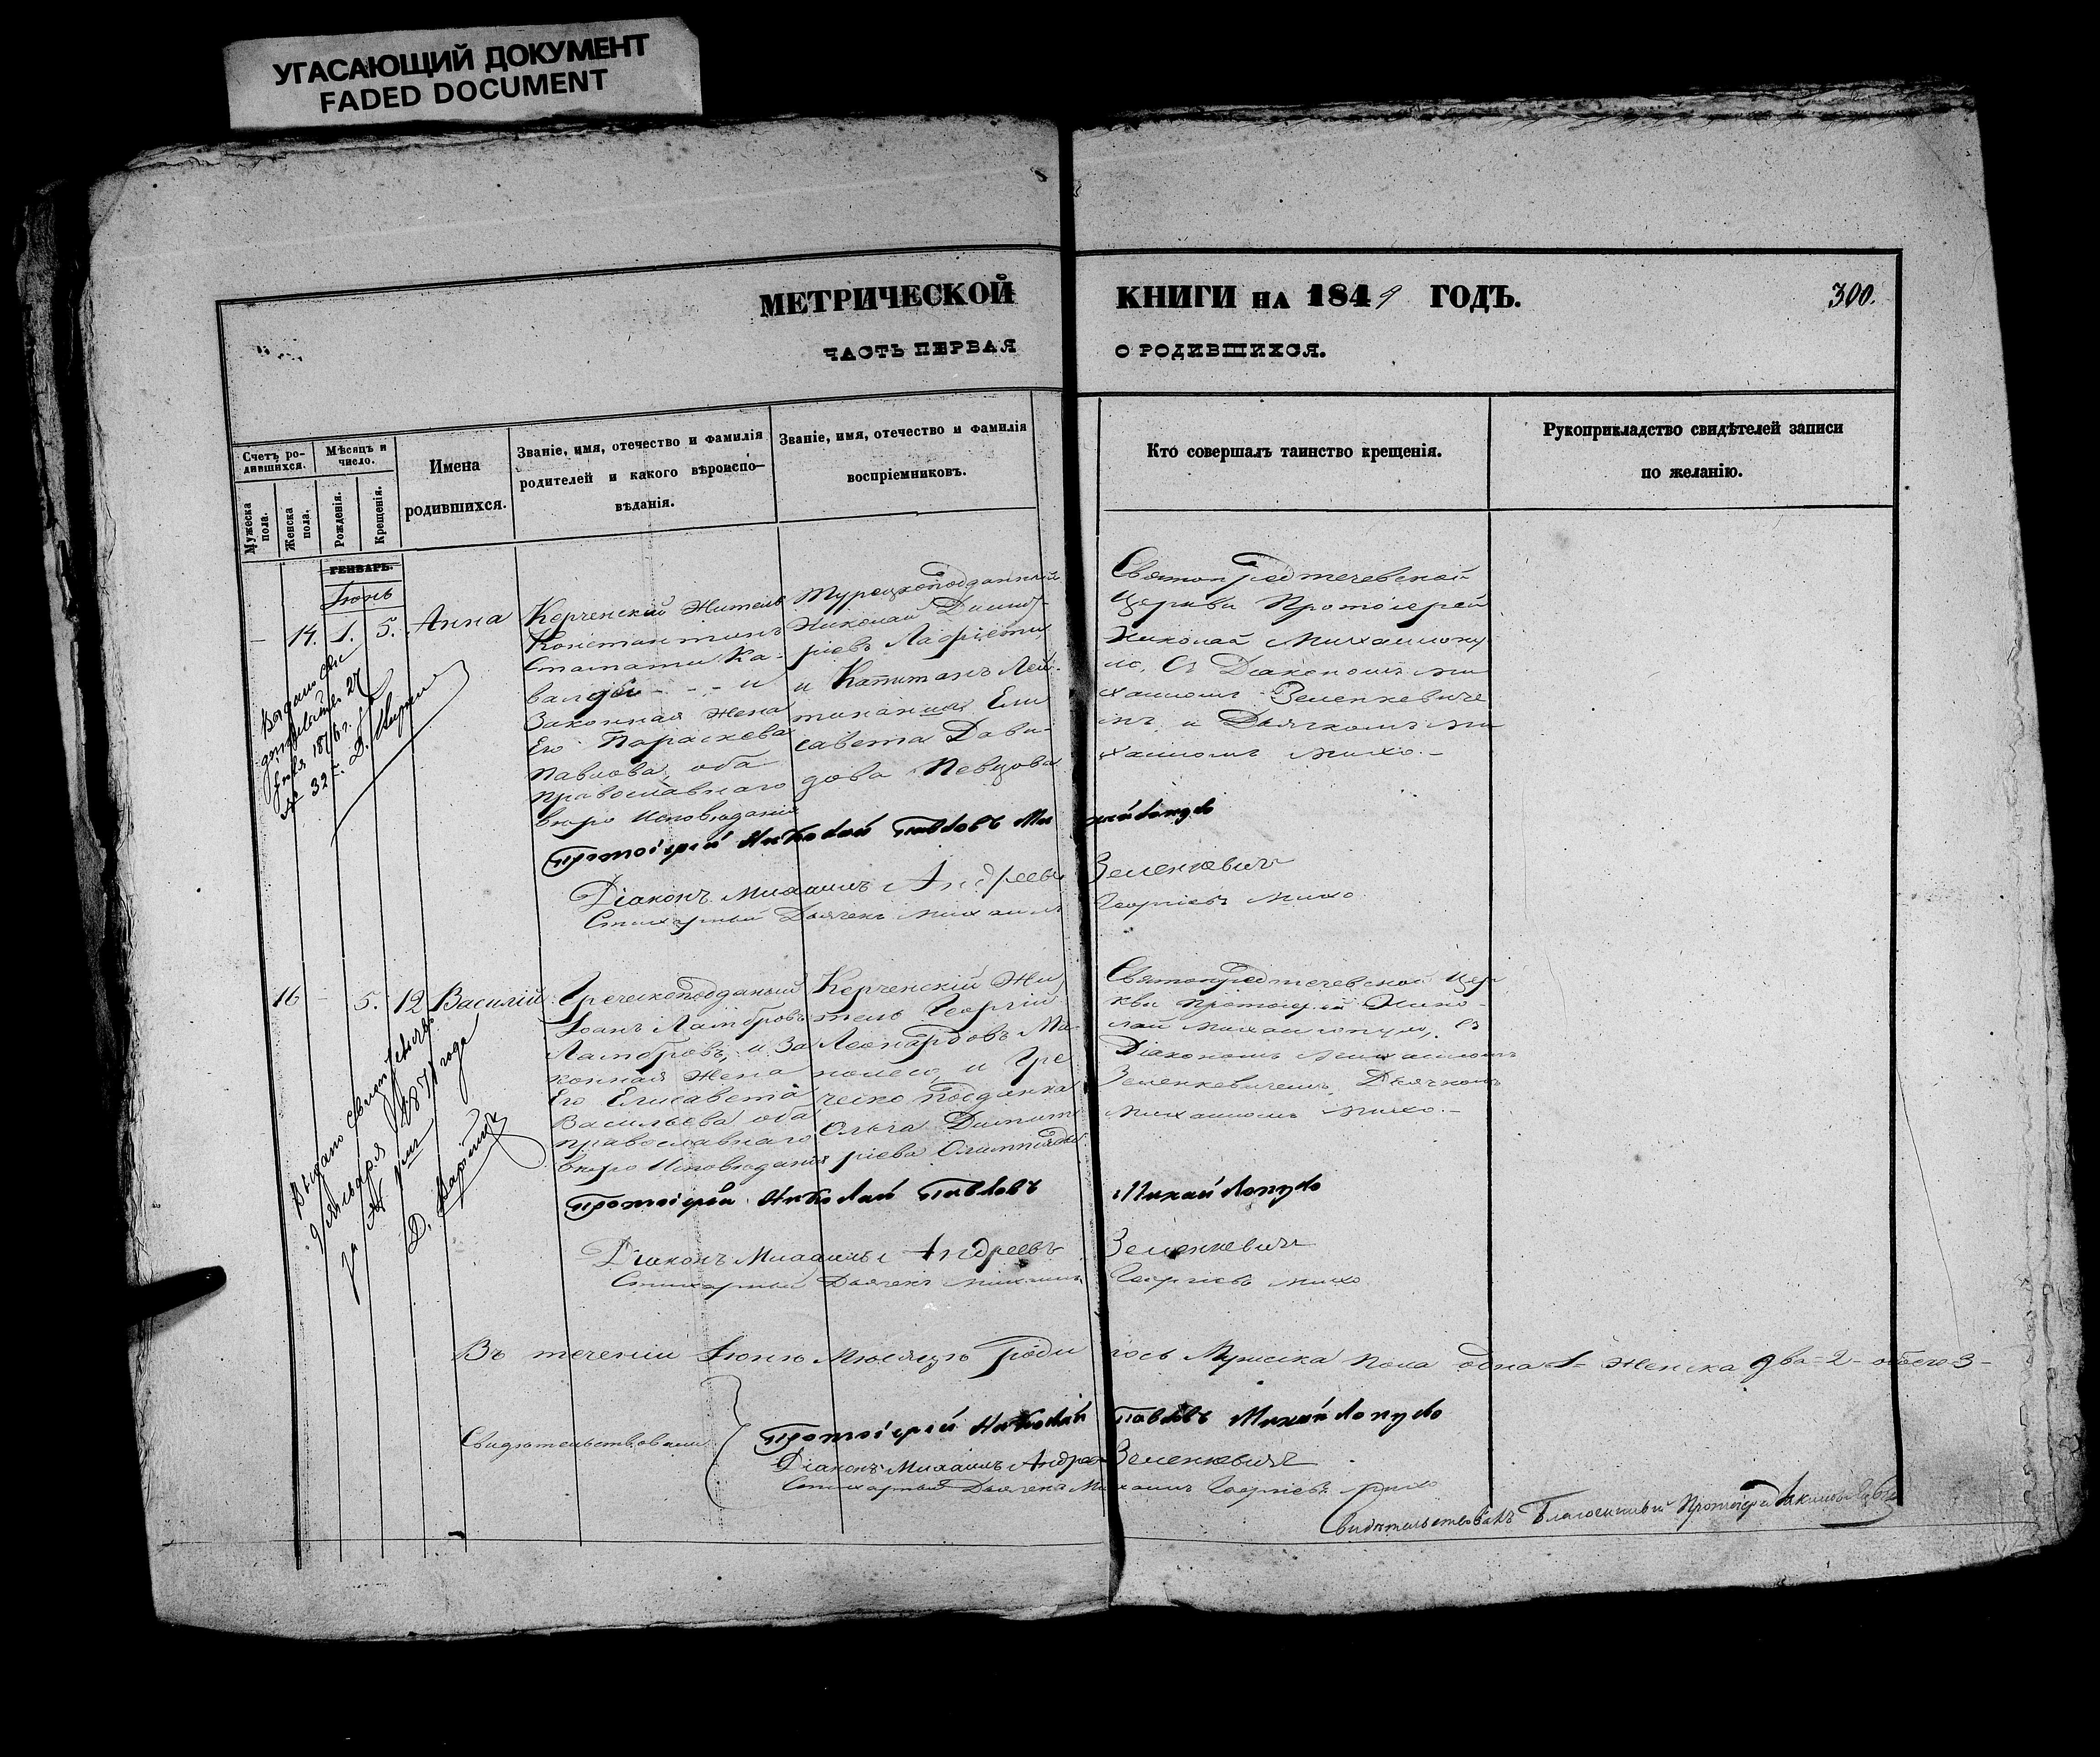 УГАСАЮЩИЙ ДОКУМЕНТ
FADED DOCUMENT
МЕТРИЧЕСКОЙ КНИГИ НА 1849 ГОДЪ.
300.
ЧАСТЬ ПЕРВАЯ О РОДИВШИХСЯ.
Счетъ ро-
дившихся.
Мужеска
пола.
Женска
пола.
Мѣсяцъ и
число.
Рожденія.
Крещенія.
Имена
родившихся.
Званіе, имя, отечество и фамилія
родителей и какого вѣроиспо-
вѣданія.
Званіе, имя, отечество и фамилія
воспріемниковъ.
Кто совершалъ таинство крещенія.
Рукоприкладство свидѣтелей записи
по желанію.
ГЕНВАРЬ.
Іюнь
- 14. 1. 5. Анна
Керченскій Житель
Константинъ
Стамати Ка-
и
Законная Жена
Его Параскева
Павлова, оба
православнаго
вѣро Исповѣданія
Турецкоподданный
Николай Димит-
ріевъ
и Капитанъ Лей-
тинанша Ели
савета Дави-
дова Певцова
Святопредтечевской
Церкви Протоіерей
Николай Михаилопу
ло, Съ Діакономъ Ми
хаиломъ Зеленкевиче
мъ и Дьячкомъ Ми
хаиломъ Михо.-
Выдано Сви
дѣтельство 27
1876 г.
№ 32
Протоіерей Николай Павловъ Михайлопуло
Діаконъ Михаилъ Андреевъ Зеленкевичъ
Стихарный Дьячекъ Михаилъ Георгіевъ Михо
16 - 5. 12 Василій
Греческоподданый
Іоанъ Ламбровъ
Ламбровъ, и За
конная Жена
Его Елисавета
Васильева оба
православнаго
вѣро Исповѣданія
Керченскій Жи
тель Георгій
Леонардовъ Ма
полево, и Гре
ческо Подданка
Ольга Димит
ріева Олимпіади
Святопредтечевской Цер
кви Протоіерей Нико-
лай Михаилопуло, Съ
Діакономъ Михаиломъ
Зеленкевичемъ, Дьячкомъ
Михаиломъ Михо.-
Выдано Свидетельство
9 Января 1871 года
за №
Д.
Протоіерей Николай Павловъ Михайлопуло
Діаконъ Михаилъ Андреевъ Зеленкевичъ
Стихарный Дьячекъ Михаилъ Георгіевъ Михо
Въ теченіи Іюня Мѣсяцъ Родилось Мужеска Пола одна 1- Женска два-2- обоего-3-
Свидѣтельствовали
Протоіерей Николай Павловъ Михайлопуло
Діаконъ Михаилъ Андреевъ Зеленкевичъ
Стихарный Дьячекъ Михаилъ Георгіевъ Михо
Свидѣтельствовалъ Благочинный Протоіерей